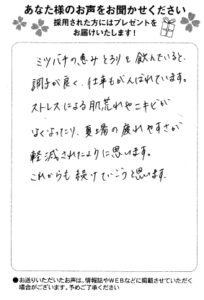 あなた様のお声をお聞かせください
採用された方にはプレゼントを
お届けいたします!
ミツバチの恵みとろりを飲んでいると、
調子が良く、仕事もがんばれています。
ストレスによる肌荒れやニキビが
なくなったり、夏場の疲れやすさが
軽減されたように思います。
これからも続けていこうと思います。
●お送りいただいたお声は、情報誌やWEBなどに掲載させていただく
場合がございます。予めご了承ください